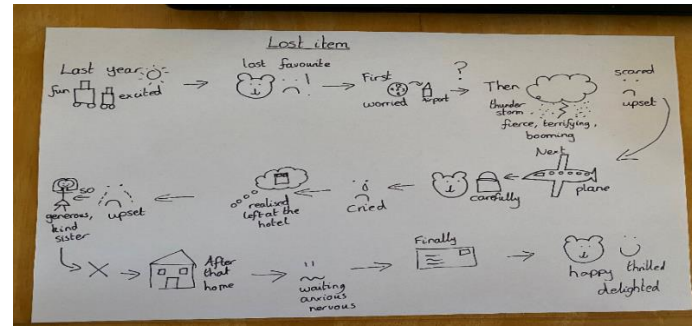 Lost item
Last year
fun
excited
lost favourite
!
First
worried
airport
?
Then
thunder
storm
fierce, terrifying,
booming
scared
upset
Next
plane
carefully
cried
realised
left at the
hotel
upset
so
generous,
kind
sister
After
that
home
waiting
anxious
nervous
Finally
happy
thrilled
delighted